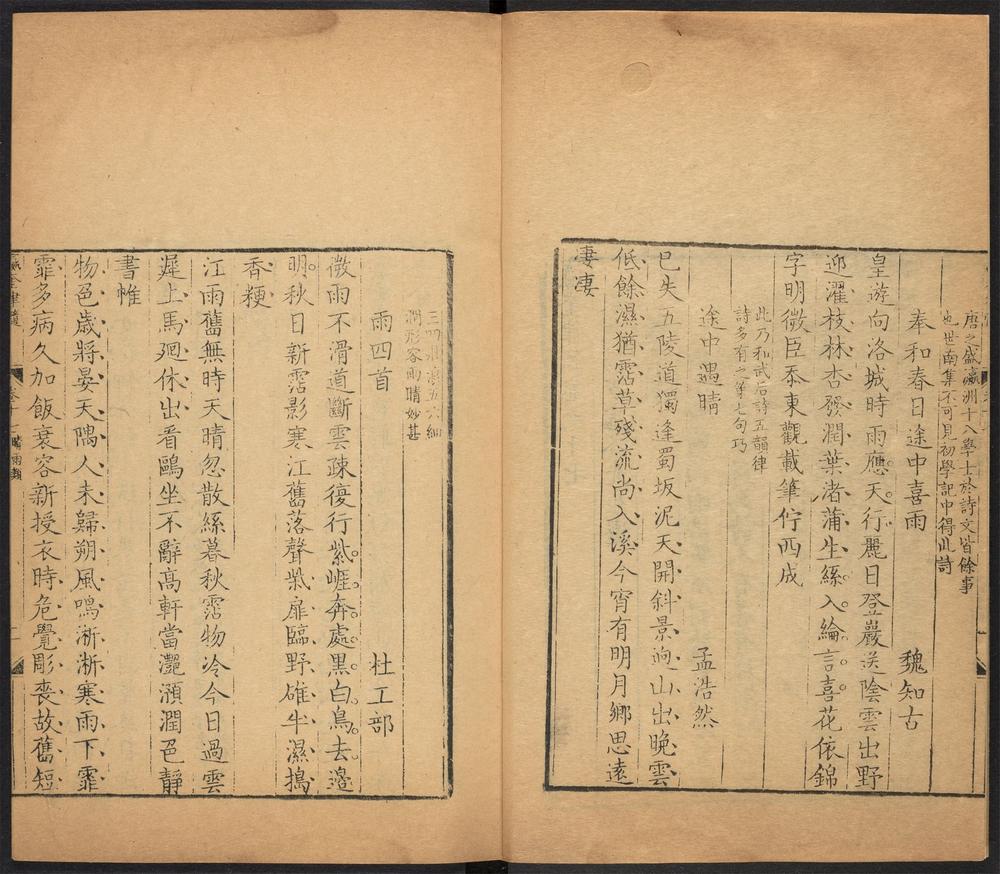 唐之盛瀛洲十八學士於詩文皆餘事
也世南集不可見初學記中得此詩
奉和春日途中喜雨　魏知古
皇遊向洛城時雨應天行麗日登巖送陰雲出野
迎濯枝林杏發潤葉渚蒲生絲入綸言喜花依錦
字明微臣忝東觀載筆佇西成
此乃和武后詩五韻律
詩多有之第七句巧
途中遇晴　孟浩然
已失五陵道獨逢蜀坂泥天開斜景逈山出晚雲
低餘濕猶霑草殘流尚入溪今宵有明月鄉思遠
淒淒
三四壯浪五六細
潤形容雨晴妙甚
雨四首　杜工部
微雨不滑道斷雲疎復行紫崖奔處黑白鳥去邊
明秋日新霑影寒江舊落聲柴扉臨野碓半濕搗
香粳
江雨舊無時天晴忽散絲暮秋霑物冷今日過雲
遲上馬廻休出看鷗坐不辭高軒當灔澦潤色靜
書帷
物色歲將晏天隅人未歸朔風鳴淅淅寒雨下霏
霏多病久加飯衰容新授衣時危覺彫喪故舊短
卷十
晴雨類